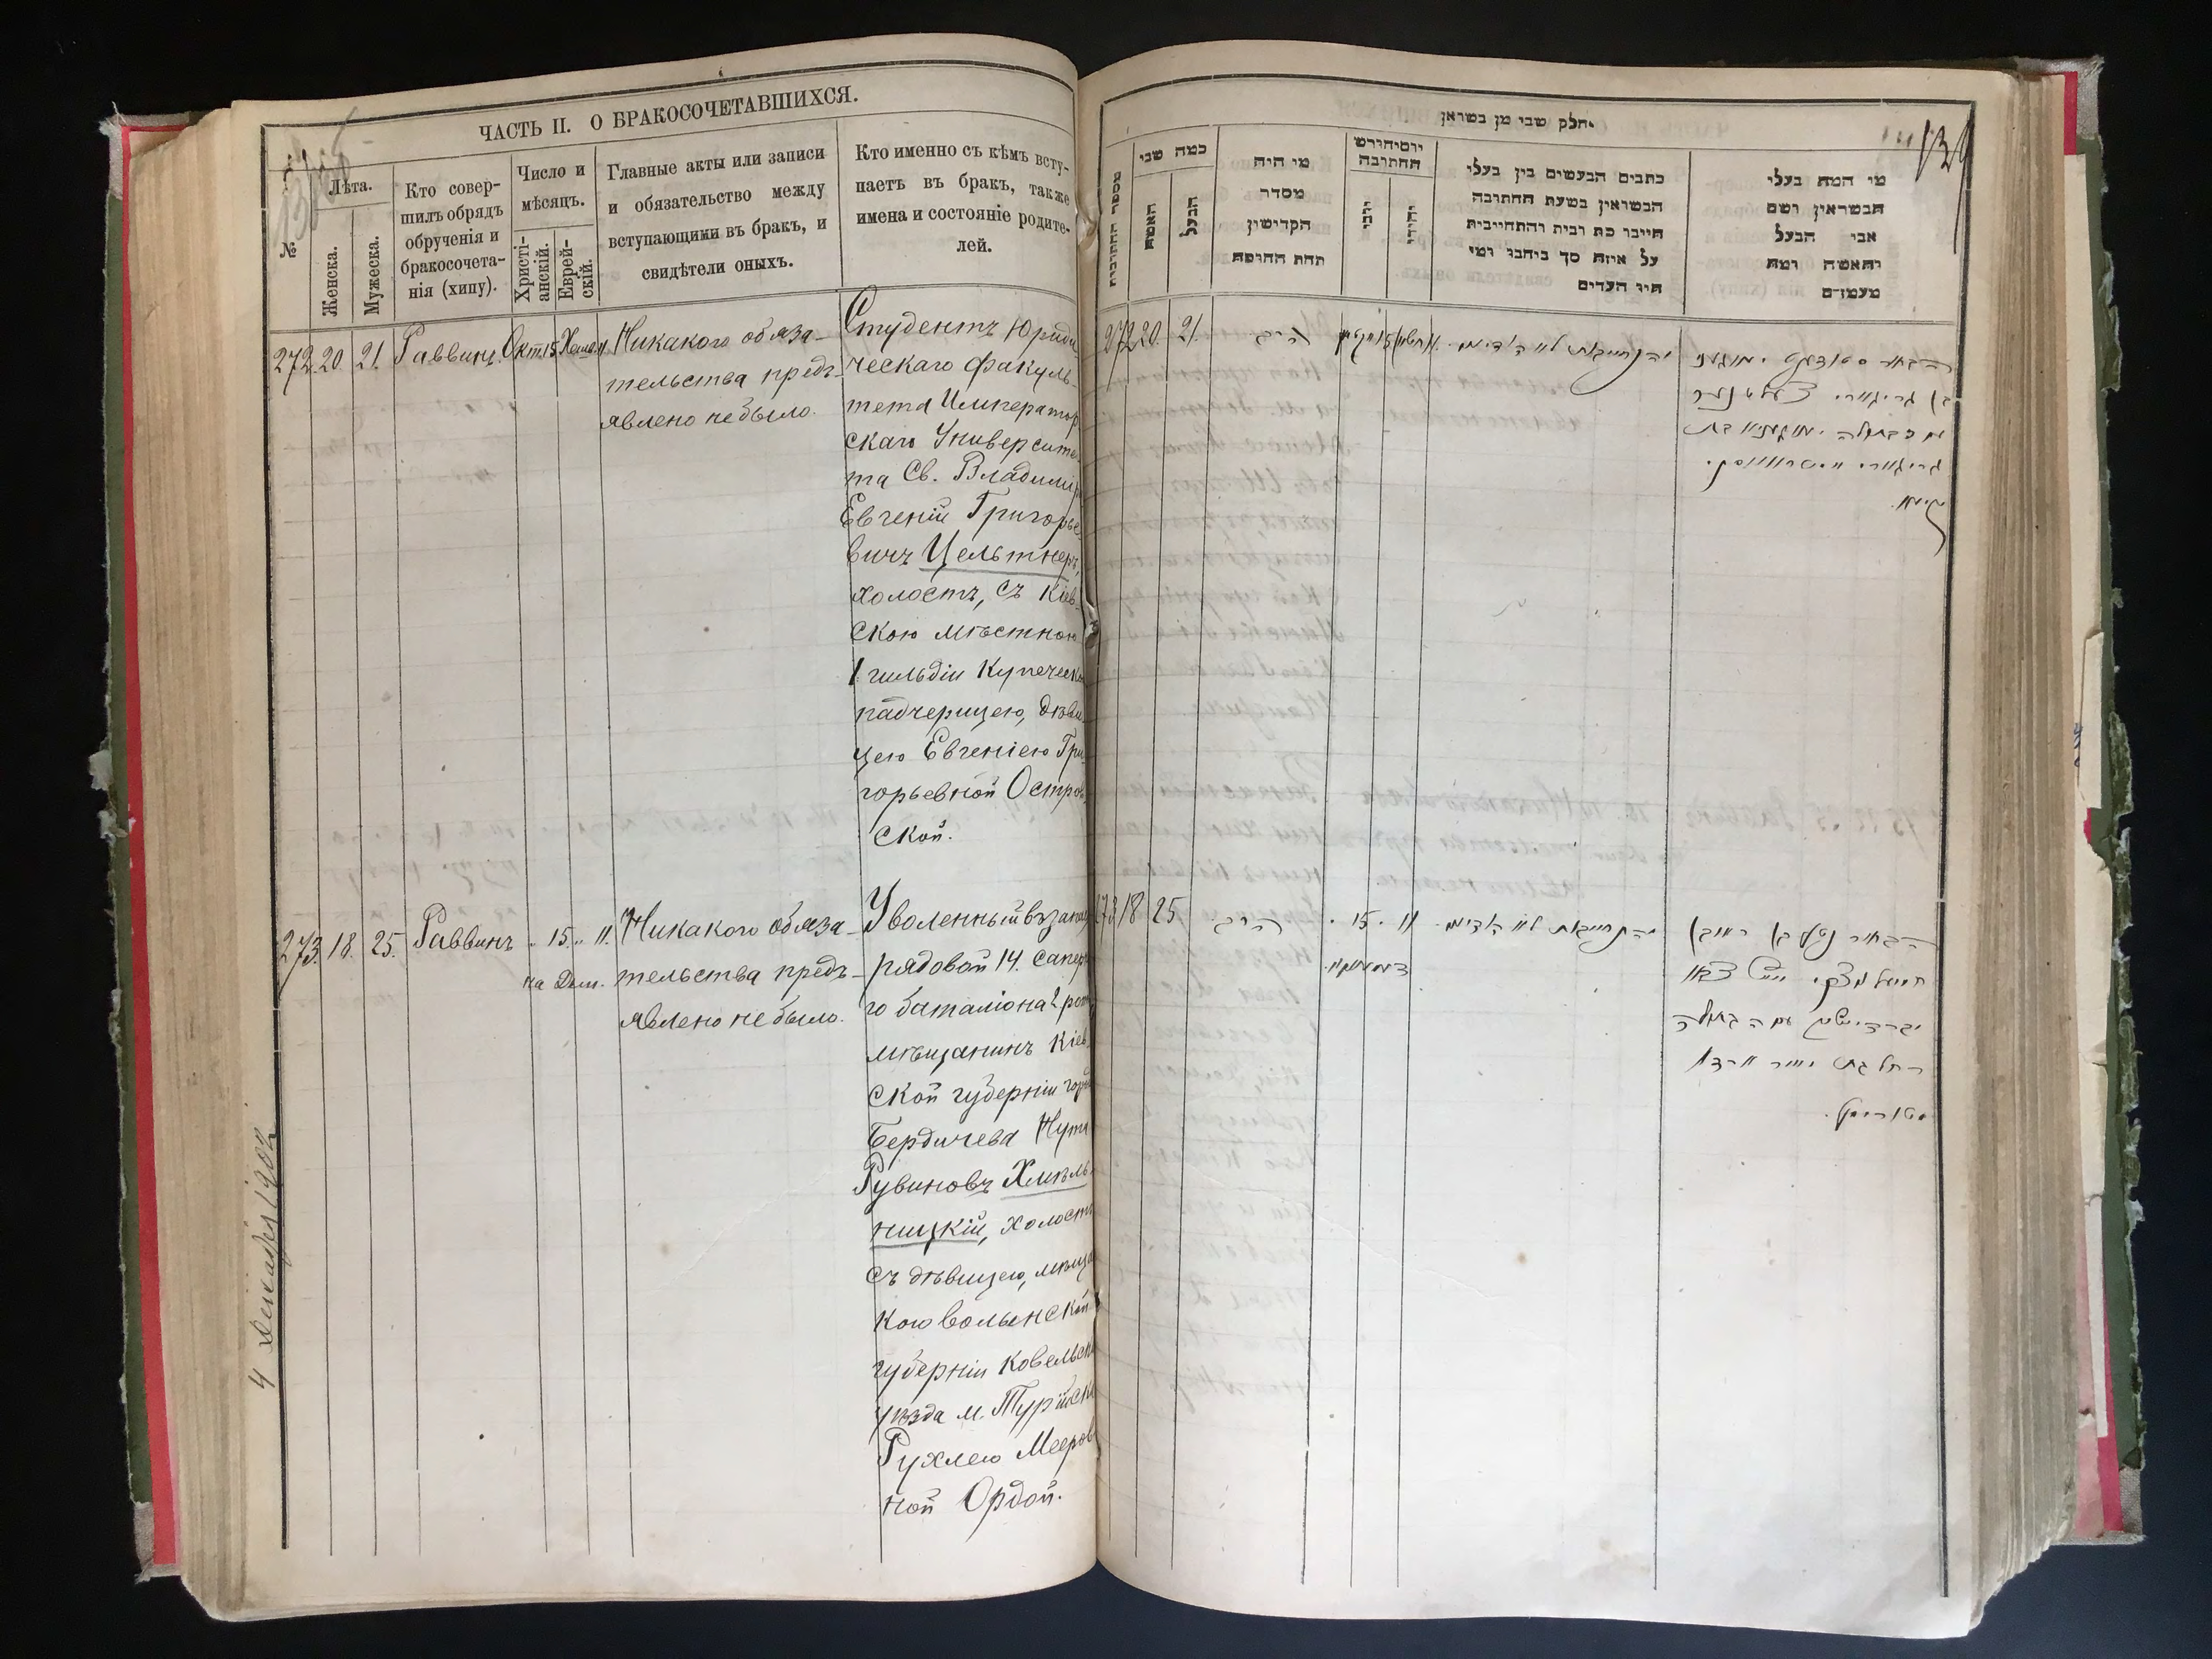 ЧАСТЬ II. О БРАКОСОЧЕТАВШИХСЯ.
№
Лѣта.
Женска.
Мужеска.
Кто совер-
шилъ обрядъ
обрученія и
бракосочета-
нія (хипу).
Число и
мѣсяцъ.
Христі-
анскій.
Еврей-
скій.
Главные акты или записи
и обязательство между
вступающими въ бракъ, и
свидѣтели оныхъ.
Кто именно съ кѣмъ всту-
паетъ въ бракъ, также
имена и состояніе родите-
лей.
272. 20. 21. Раввинъ. Окт. 15
Никакого обяза-
тельства предъ-
явлено не было.
Студентъ Юриди
ческаго факуль
тета Император
скаго Университе
та Св. Владимир
Евгеній Григорье
вичъ Цельтнеръ,
холостъ, съ Кіев
скою мѣстною
1 гильдіи Купеческ
падчерицею, дѣви
цею Евгеніею Гри
горьевной Остров
ской.
273. 18. 25. Раввинъ " 15. " 11.
на Дем.
Никакого обяза-
тельства предъ-
явлено не было.
Уволенный въ запас
рядовой 14. Сапер
го баталіона 2 рот
мѣщанинъ Кіев
ской губерніи гор
Бердичева Нута
Рувиновъ Хмѣль
ницкій, холостъ
съ дѣвицею, мѣща
кою Волынской
губерніи Ковельск
уѣзда м. Турійска
Рухлею Мееров
ной Ордой.
4 декабря 1902
חלק שני מן נשואין
139
מספר החתונות
כמה שני
האשה
הבעל
מי היה
מסדר
הקדושין
תחת החופה
יום וחודש
החתונה
נוצרי
יהודי
כתבים הנעשים בין בעלי
הנשואין בשעת החתונה
חיוב כת רבית והתחייבות
על איזה סך ביחבו ומי
היו העדים
מי המה בעלי
הנשואין ושם
אבי הבעל
והאשה ומה
מעמדם
272 20. 21. הרב.
הבחור סטודענט יעווגעני
בן גריגורי צעלטנער
עם הבתולה יעווגעניא בת
גריגורי אוסטרווסקי.
273 18 25 הרב. 15. 11
הבחור נטע בן ראובן
חמעלניצקי
עם הבתולה
רחל בת מאיר ארדא